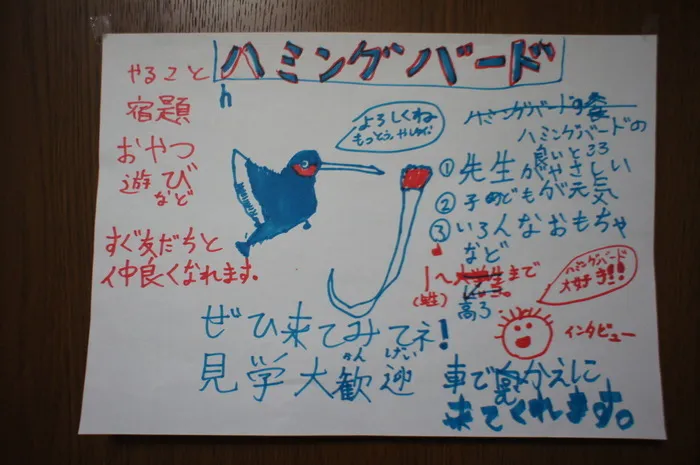 ハミングバード
h
やること
宿題
おやつ
遊び
など
すぐ友だちと
仲良くなれます.
よろしくね
ハミングバードの
良いところ
①先生がやさしい
②子どもが元気
③いろんなおもちゃ
など
1〜まで
高3
ハミングバード
大好き!!
インタビュー
ぜひ来てみてネ!
見学大歓迎
かんげい
車でむかえに
来てくれます。